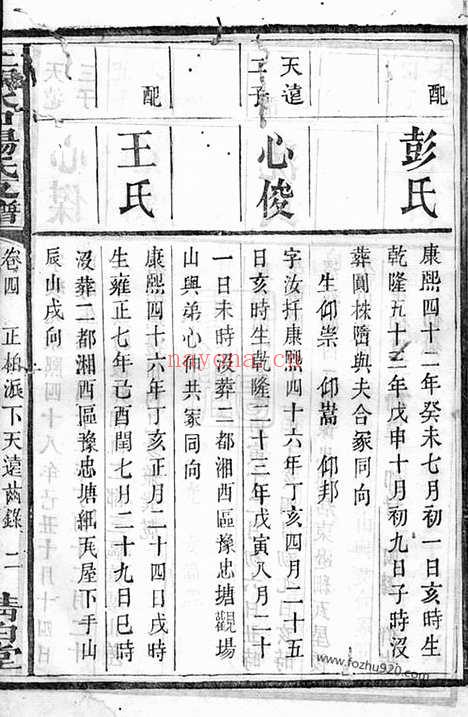 配
彭氏
康熙四十二年癸未七月初一日亥時生
乾隆五十三年戊申十月初九日子時沒
葬圓株嶞與夫合冢同向
生仰崇 仰嵩 仰邦
天遠
二子
心俊
字汝扦康熙四十六年丁亥四月二十五
日亥時生乾隆二十三年戊寅八月二十
一日未時沒葬二都湘西區豫忠塘觀塲
山與弟心 共冢同向
配
王氏
康熙四十六年丁亥正月二十四日戌時
生雍正七年己酉閏七月二十九日巳時
沒葬二都湘西區豫忠塘絍瓦屋下手山
辰山戌向
湯氏 譜
卷四
正柏派下天遠齒錄
二
清白堂
nayona.cn
www.fozhu920.com